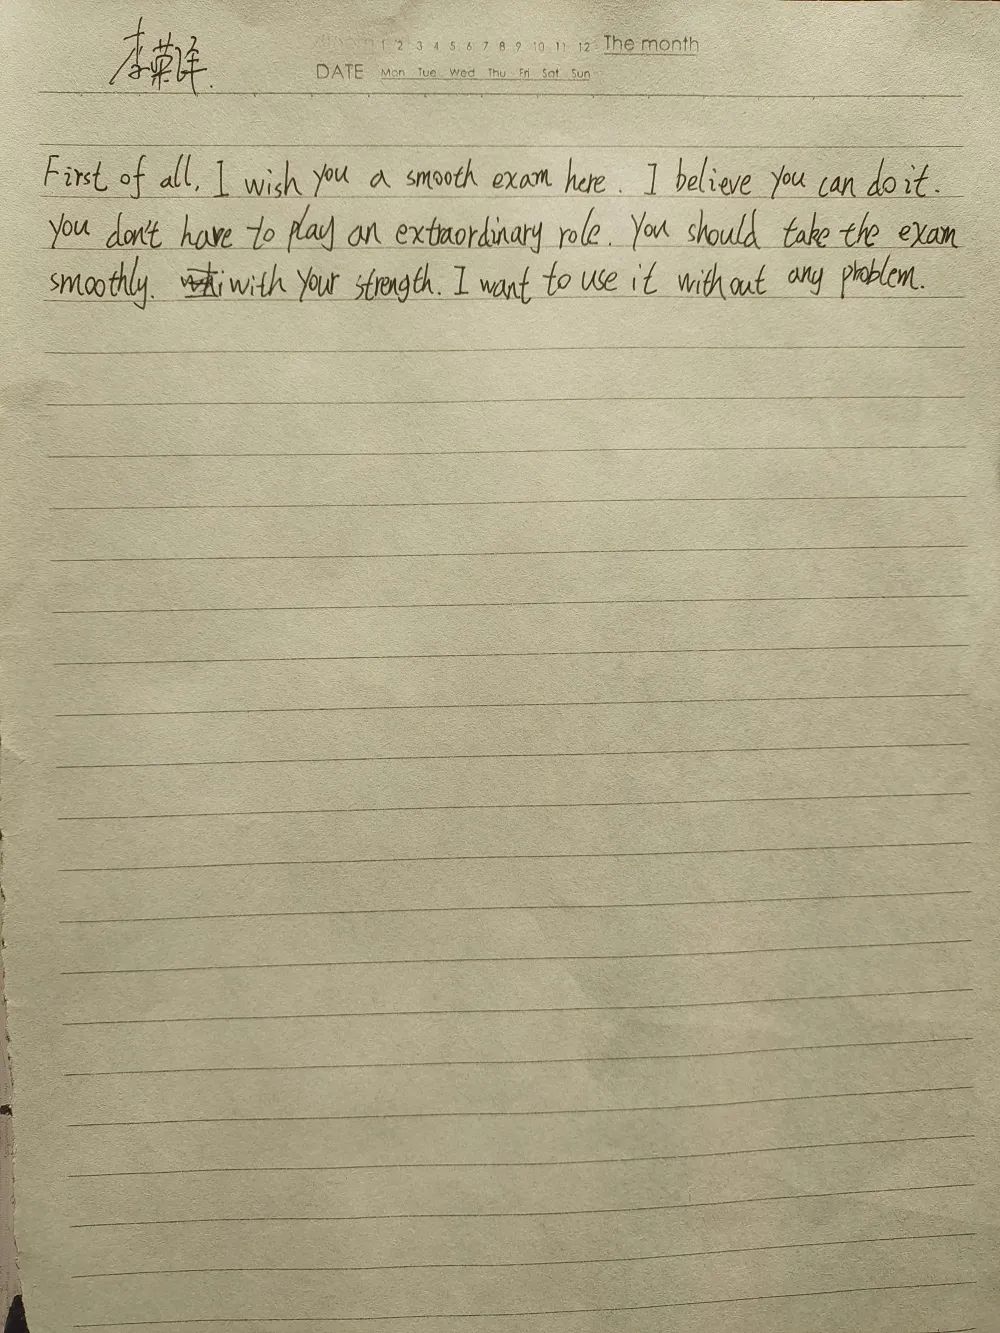 李
1 2 3 4 5 6 7 8 9 10 11 12 The month
DATE Mon Tue Wed Thu Fri Sat Sun
First of all, I wish you a smooth exam here. I believe you can do it.
you don't have to play an extraordinary role. You should take the exam
smoothly. with your strength. I want to use it without any problem.